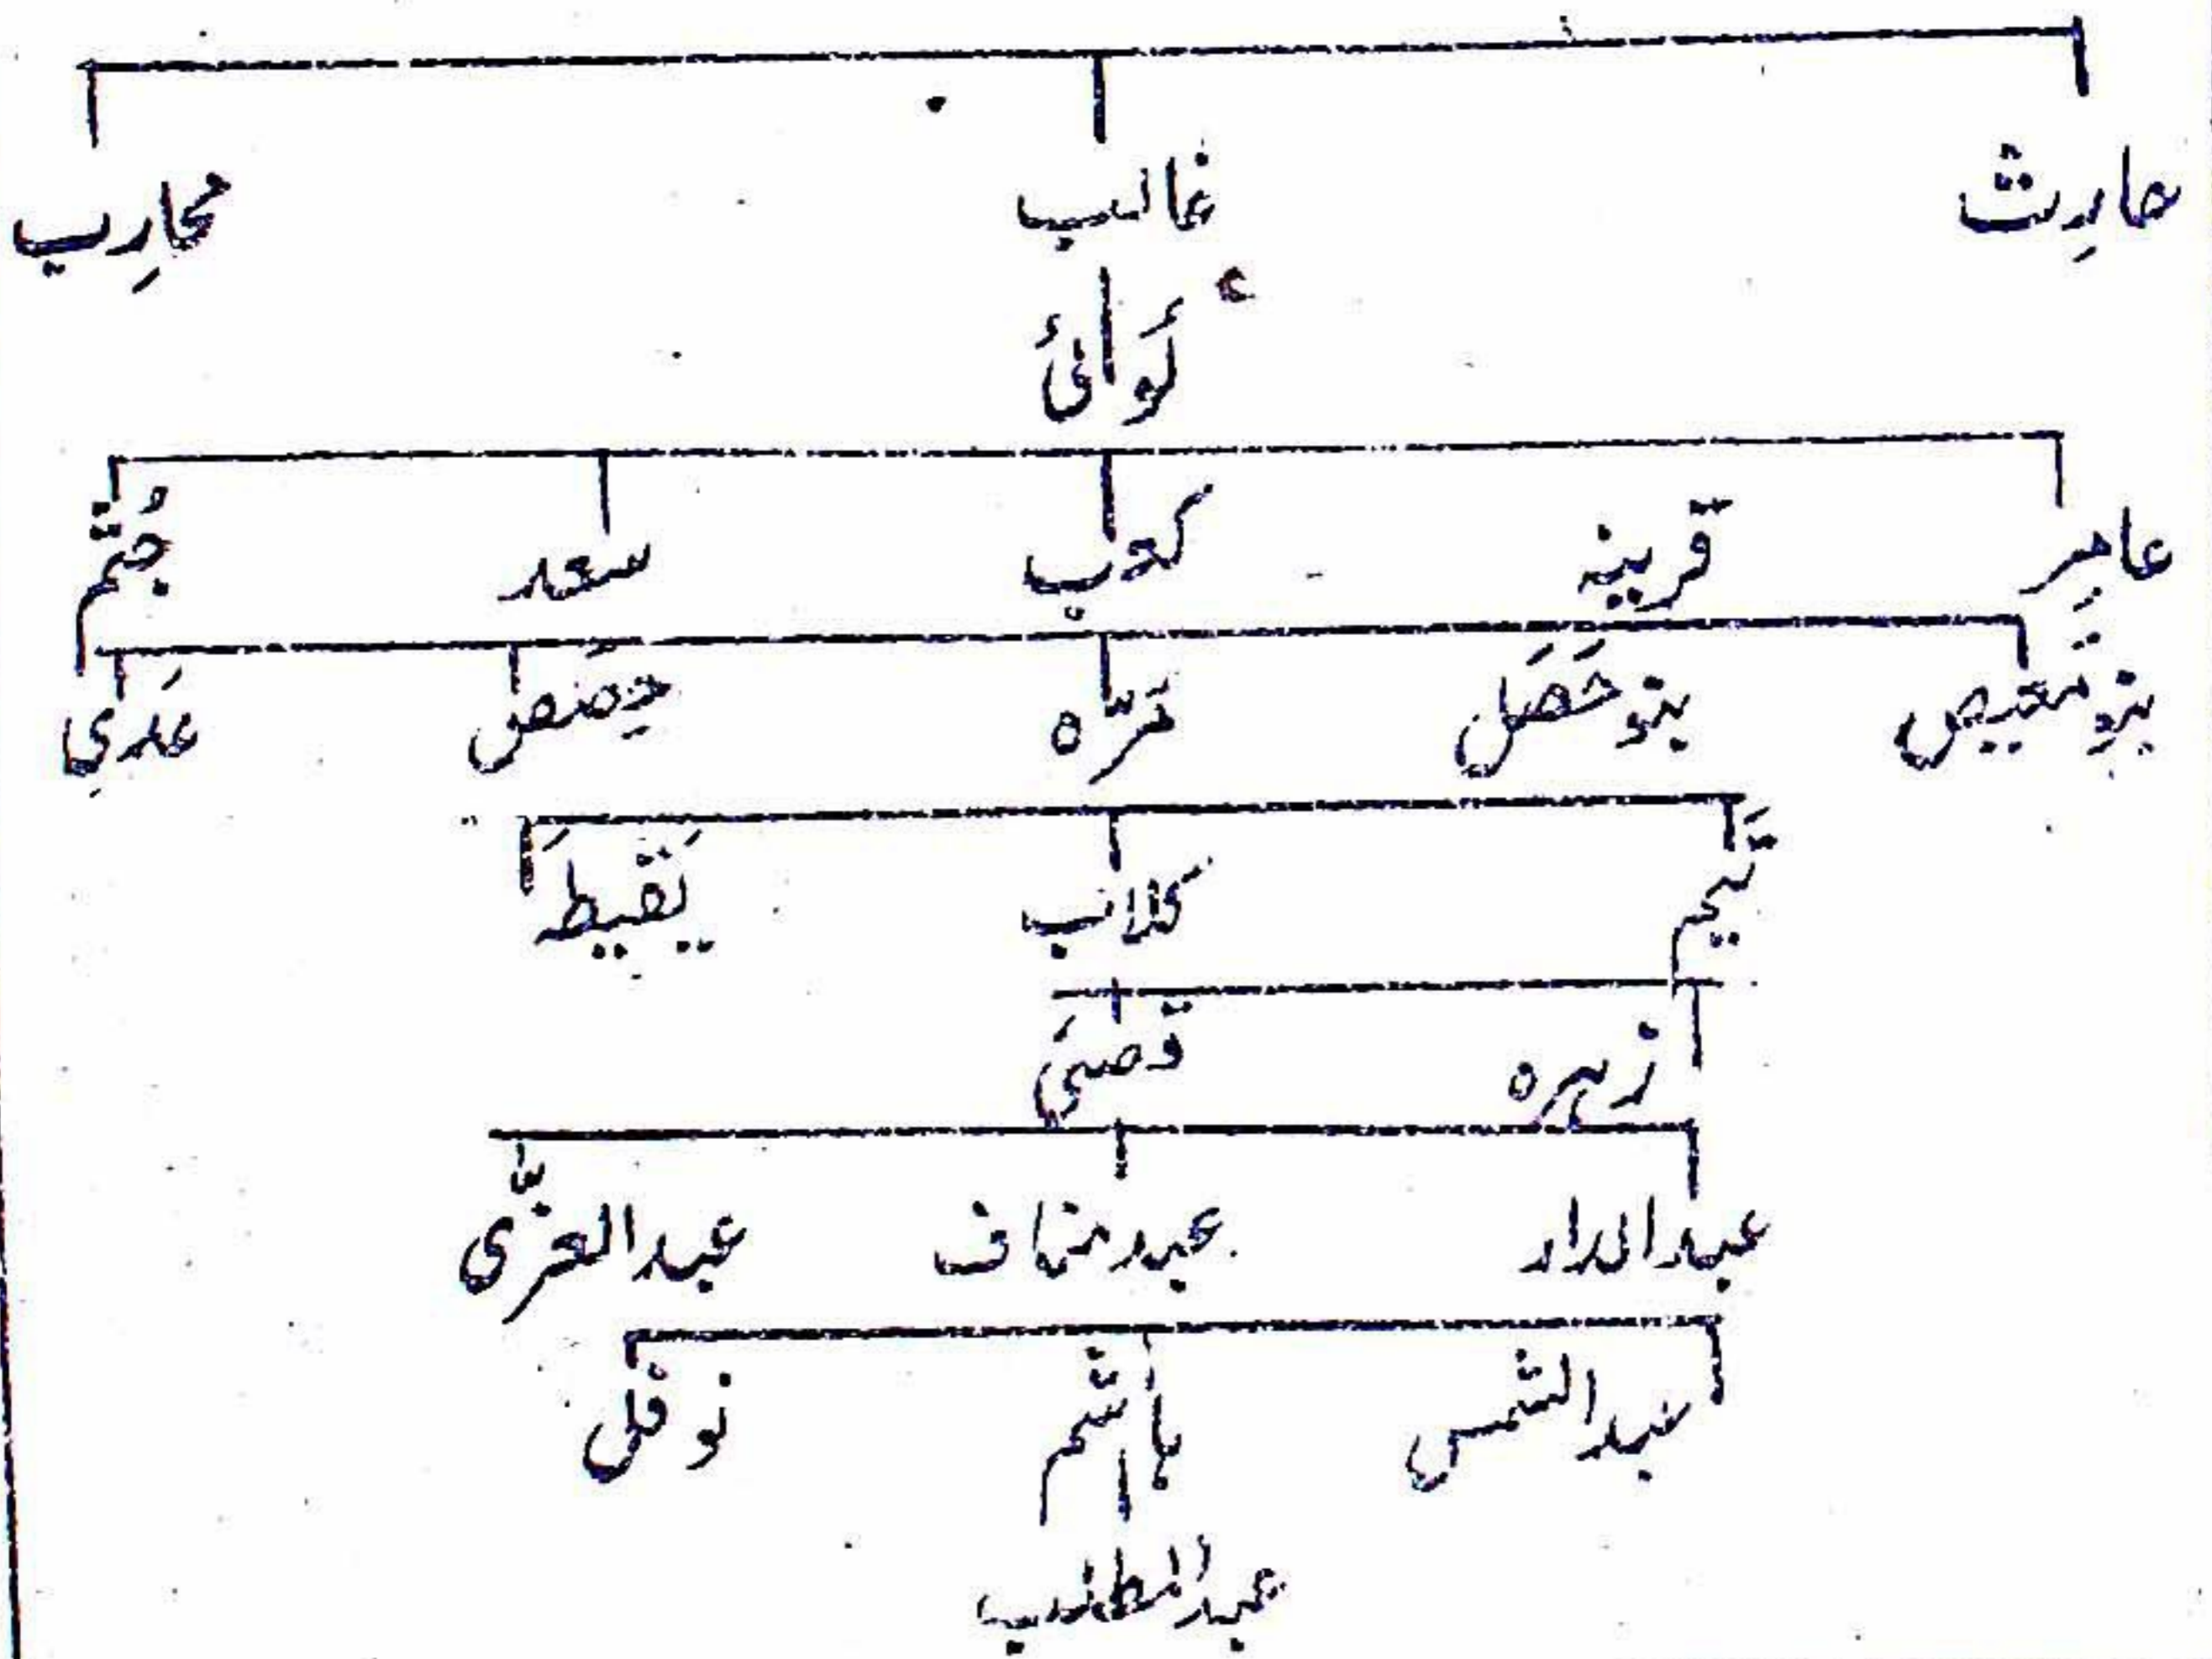 حارِث غالب محارِب
لَوائ
عامِر قرینہ کعب سعد جُثم
بنو مَعیص بنو حَصَل مَرّہ حِصَص عَدِی
تَیم کلاب یَقیطَہ
زہرہ قصیَ
عبدالدار عبد مناف عبدالعزّی
عبدالشمس ہاشم نوفل
عبدالمطلب